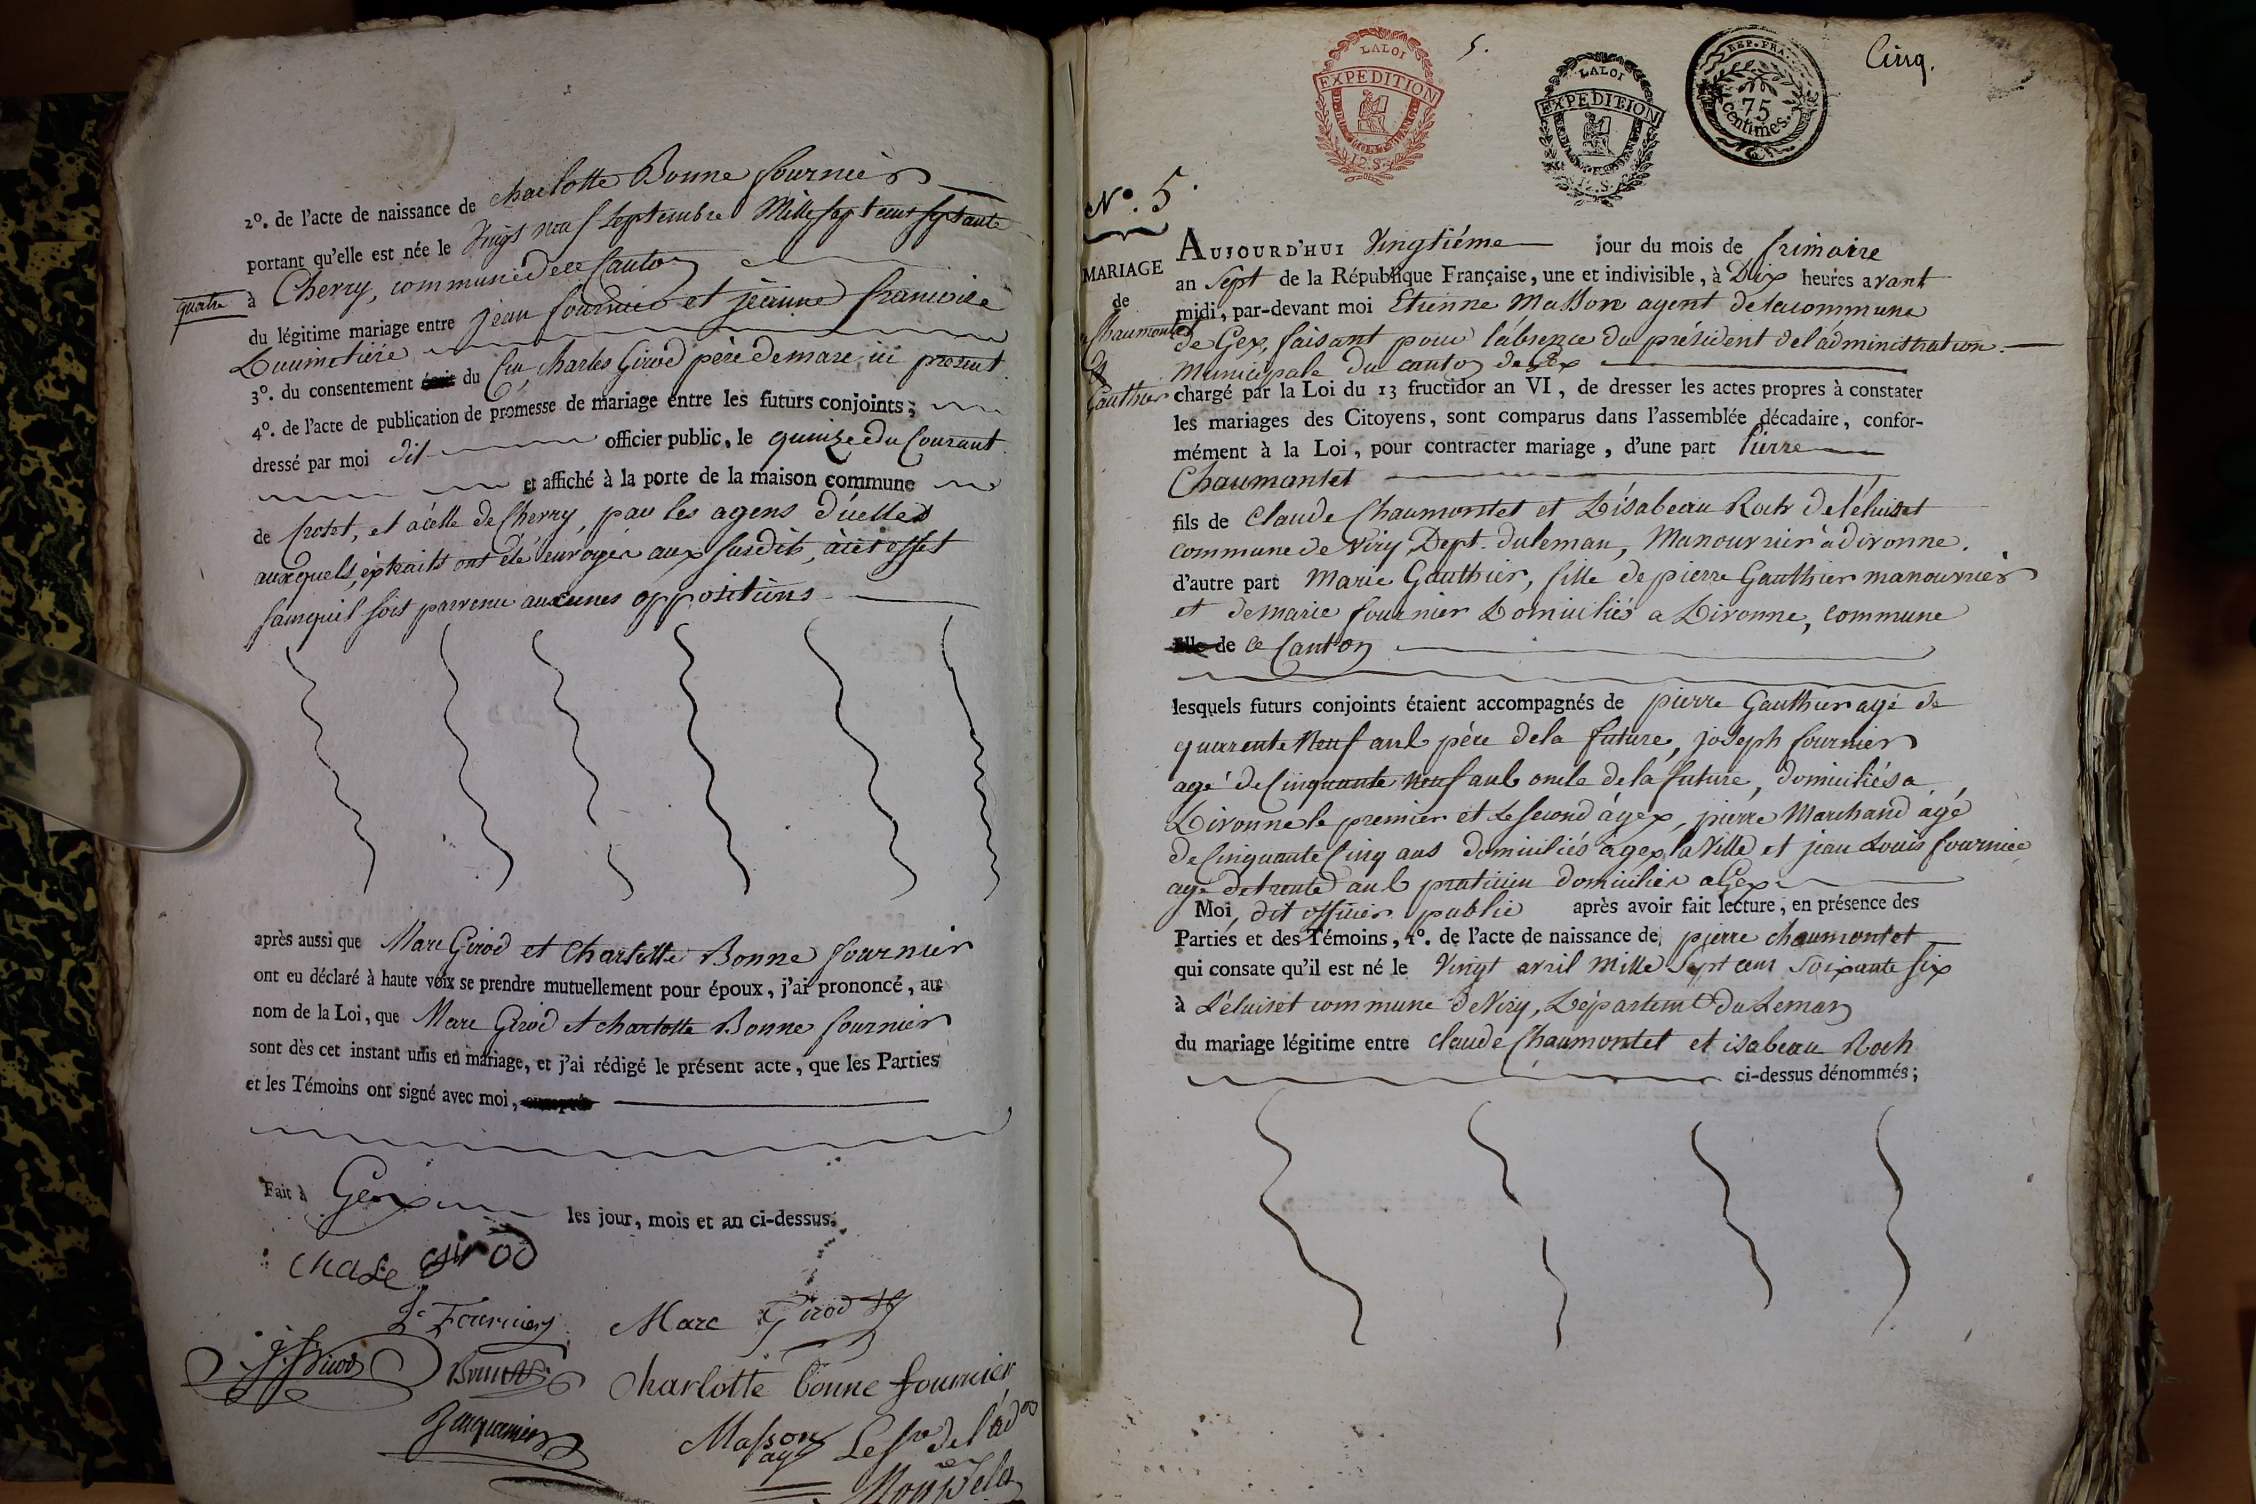 2º. de l'acte de naissance de Charlotte Bonne fournier
portant qu'elle est née le Vingt neuf Septembre Mille Sept cent Septante
quatre à Chevry, commune de ce Canton
du légitime mariage entre jean fournier et jeanne francoise
Dumetière
3º. du consentement du Cn Charles Girod père de marc, ici présent
4º. de l'acte de publication de promesse de mariage entre les futurs conjoints;
dressé par moi dit officier public, le quinze du Courant
et affiché à la porte de la maison commune
de Crotet, et à celle de Chevry, par les agens d'icelles
auxquels éxtraits ont été envoyés aux susdits, à cet effet
sanqu'il soit parvenu aucunes oppositions
après aussi que Marc Girod et Charlotte Bonne fournier
ont eu déclaré à haute voix se prendre mutuellement pour époux, j'ai prononcé, au
nom de la Loi, que Marc Girod et charlotte Bonne fournier
sont dès cet instant unis en mariage, et j'ai rédigé le présent acte, que les Parties
et les Témoins ont signé avec moi,
Fait à Gex les jour, mois et an ci-dessus.
Girod
Fournier Marc Girod
Charlotte bonne fournier
Masson
agt
5. Cinq.
LA LOI
EXPEDITION
12. S.
LA LOI
EXPEDITION
12. S.
REP. FRA.
75
Centimes.
Nº. 5.
MARIAGE
de
Chaumontet
et
Gauthier
AUJOURD'HUI Vingtiéme jour du mois de frimaire
an Sept de la République Française, une et indivisible, à Dix heures avant
midi, par-devant moi Etienne Masson agent de la commune
de Gex, faisant pour l'absence du président de l'administration
Municipale du canton de Gex
chargé par la Loi du 13 fructidor an VI, de dresser les actes propres à constater
les mariages des Citoyens, sont comparus dans l'assemblée décadaire, confor-
mément à la Loi, pour contracter mariage, d'une part Pierre
Chaumontet
fils de Claude Chaumontet et Lisabeau Roch de l'éluiset
commune de Viry Dept. du leman, Manouvrier à divonne.
d'autre part Marie Gauthier, fille de pierre Gauthier manouvrier
et de marie fournier Domiciliés a Divonne, commune
de ce Canton
lesquels futurs conjoints étaient accompagnés de pierre Gauthier agé de
quarente Neuf ans père de la future, joseph fournier
agé de Cinquante Neuf ans oncle de la future, domiciliés a
Divonne le premier et le second à gex, pierre Marchand âgé
de Cinquante Cinq ans domiciliés à gex la Ville et jean Louis fournier
agé de trente ans praticien domicilier a Gex
Moi, dit officier public après avoir fait lecture, en présence des
Parties et des Témoins, 1º. de l'acte de naissance de pierre chaumontet
qui consate qu'il est né le Vingt avril Mille Sept cent Soixante six
à L'éluiset commune de Viry, Départemt du Leman
du mariage légitime entre claude Chaumontet et isabeau Roch
ci-dessus dénommés;